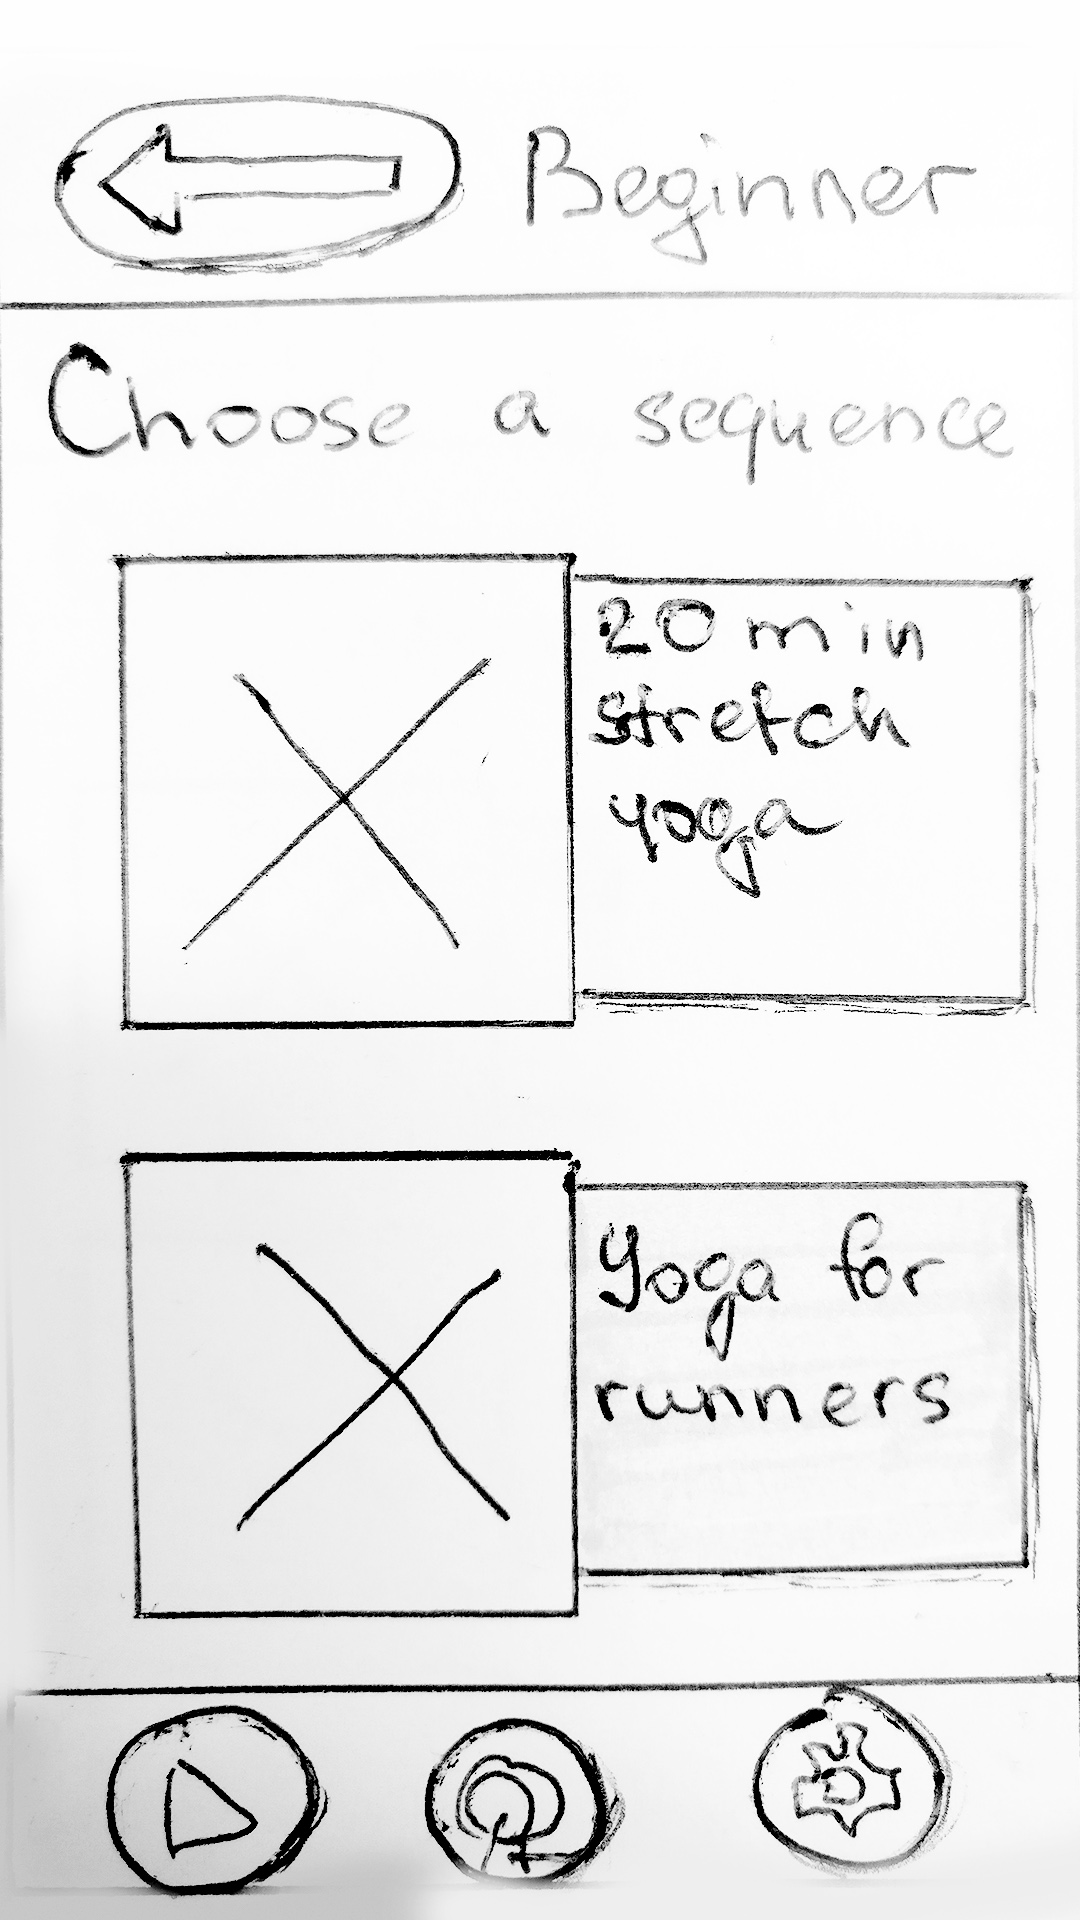 Beginner
Choose a sequence
20 min
stretch
yoga
Yoga for
runners